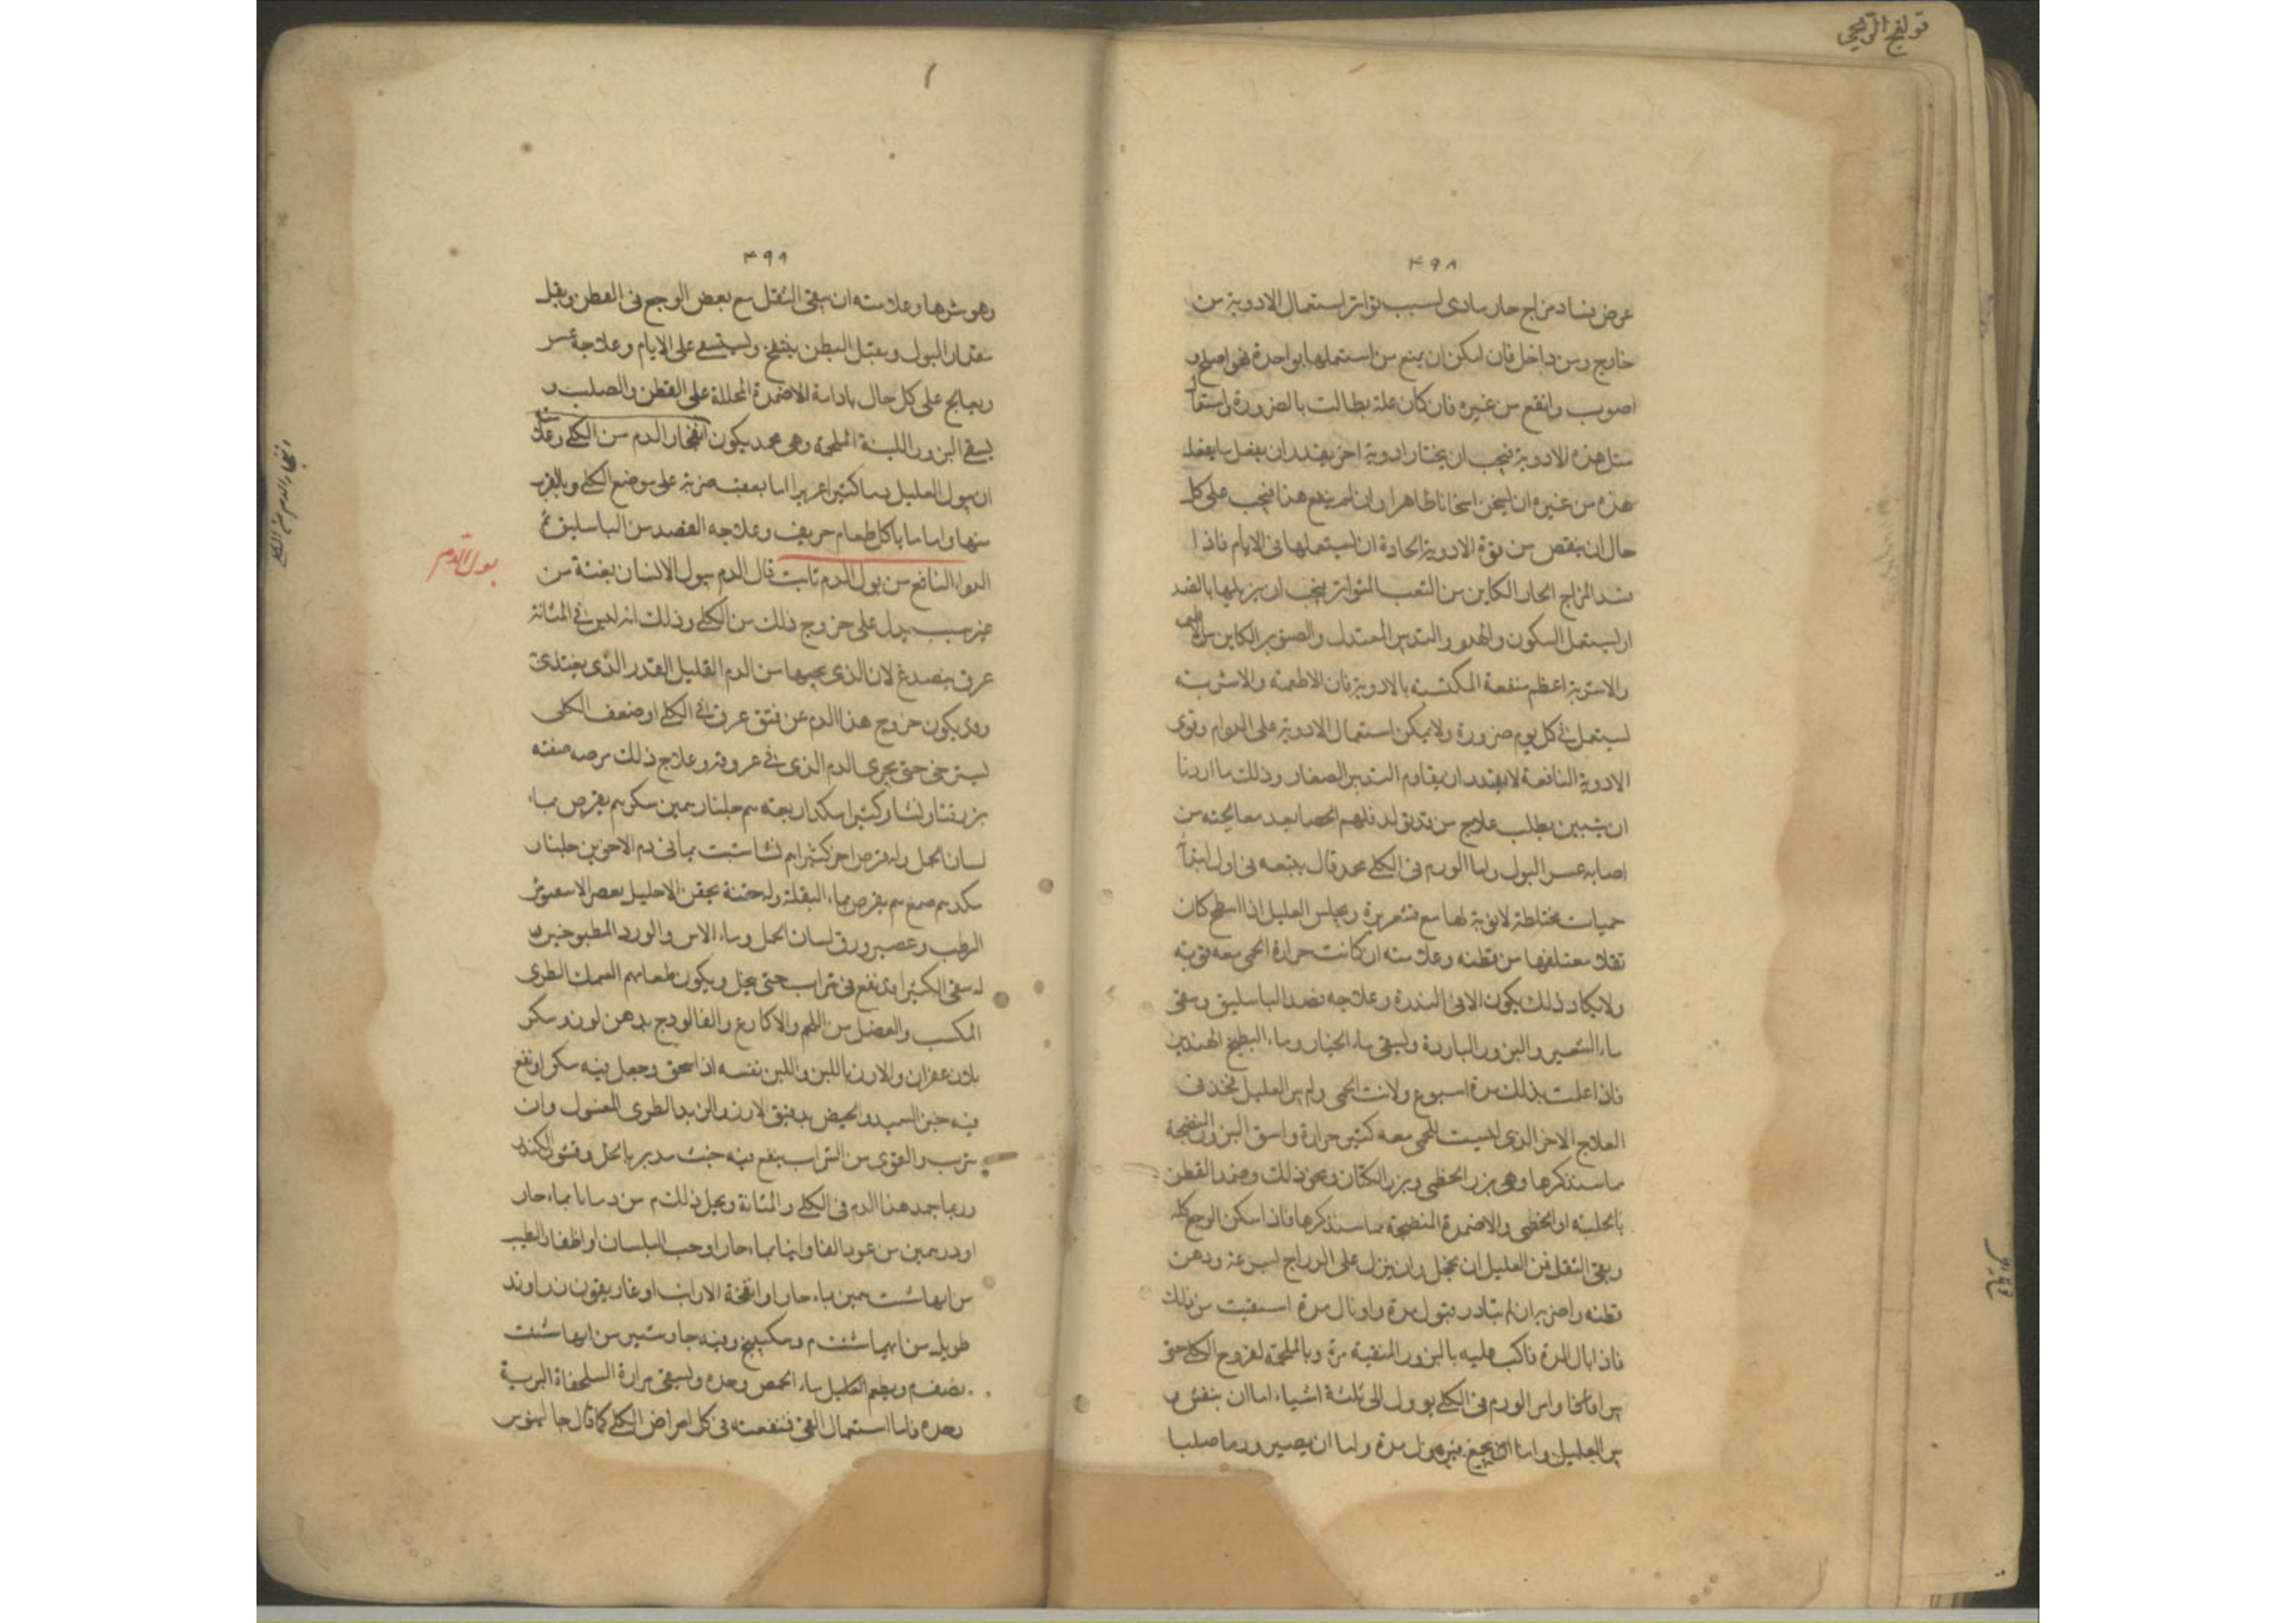 قولنج الريحي
٤٩٨
عرض فساد مزاج حار مادى لسبب تواتر استعمال الادوية من
خارج ومن داخل فان امكن ان يمنع من استعمالها بواحدة فهو اصلح و
اصوب وانفع من غيره فان كان علة بطالت بالضرورة واستعمال
مثل هذه الادوية فيجب ان يختار ادوية اخر يقدر ان يفعل ما يفعل
هذه من غيره ان يسخن اسخانا ظاهرا وان لم يتهيا هذا فيجب على كل
حال ان ينقص من قوة الادوية الحادة ان يستعملها فى الايام فاذا
المزاج الحار الكاين من التعب المتواتر فيجب ان يزيلها بالضد
ان يستعمل السكون والهدو والتدبير المعتدل والكاين من
والاشربة اعظم منفعة المكتسبة بالادوية فان الاطعمة والاشربة
يستعمل فى كل يوم ضرورة ولا يمكن استعمال الادوية على الدوام وقوى
الادوية النافعة لا يقدر ان يقاوم التدبير وذلك ما اردنا
ان نبين بطلب علاج من قد تولد فى الحصا بعد معالجته من
اصابه عسر البول واما الورم فى الكلى محمد قال يتبعه فى اول ابتدا
حميات مختلطة لا نوبة لها مع قشعريرة ويحس العليل اذا انبطح كان
ثقلا معتلقا من قطنه وعلامته ان كانت حرارة الحمى معه قوية
ولا يكاد ذلك يكون الا فى الندرة وعلاجه فصد الباسليق وسقى
ماء الشعير والبزور الباردة وليسقى ماء الخيار وماء البطيخ الهندى
فاذا علمت بذلك مدة اسبوع ولانت الحمى ولم يبر العليل فخذ فى
العلاج الاخر الذى ليست للحمى معه كثير حرارة واسق البزور المنضجة
ما سنذكرها وهى بزر الخطمى وبزر الكتان ونحو ذلك وضمد القطن
بالحلبة او الخطمى والاضمدة المنضجة مما سنذكرها فاذا سكن الوجع كله
وبقى الثقل فمر العليل ان يحجل وان ينزل على الدرج بسرعة ودهن
قطنه وان لم تبادر فتبول مدة وان بال مدة استغنيت من ذلك
فاذا بال المدة فاكب عليه بالبزور المنقية مرة وبالملحمة لقروح الكلى حتى
يبرا وامر الورم فى الكلى يوول الى ثلثة اشياء اما ان ينفش و
يبر العليل واما ان يجمع فيبول مدة واما ان يصير ورما صلبا
٤٩٩
وهو شرها وعلامته ان يبقى الثقل مع بعض الوجع فى القطن ويقل
مقدار البول ويعتل البطن وليستسقى على الايام وعلاجه عسر
ويعالج على كل حال بادامة الاضمدة المحللة على القطن والصلب و
يسقى البزور اللينة الملحمة وهى محمد يكون انفجار الدم من الكلى وعلامته
ان يبول العليل دما كثيرا غزيرا اما بعقب ضربة على موضع الكلى وبالقرب
منها واما ما ياكل طعام حريف وعلاجه الفصد من الباسليق ثم
الدواء النافع من بول الدم ثابت قال الدم يبول الانسان بغتة من
غير سبب يدل على خروج ذلك من الكلى وذلك انه ليس فى المثانة
عرق ينصدع لان الذى يجيها من الدم القليل القدر الذى يغتذى
وقد يكون خروج هذا الدم عن فتق عرق فى الكلى او ضعف الكلى
يسترخى حتى يجرى الدم الذى فى عروقه وعلاج ذلك قرصه صفته
بزر قثاء ونشا وكثيرا من كل اربعة م جلنار درهمين سكر م يقرص بماء
لسان الحمل وله قرص اخر كثيرا م نشا شبت يمانى دم الاخوين جلنار
من كل م صمغ م يقرص بماء البقلة وله حقنة يحقن الاحليل بعصير
الرطب وعصير ورق لسان الحمل وماء الاس والورد المطبوخين و
له سقى الكثيرا وقد نقع فى شراب حتى ينحل ويكون طعامهم السمك الطرى
المكبب والعضل من اللحم والاكارع والفالوذج بدهن لوز وسكر
بلا زعفران والارز باللبن واللبن نفسه اذا سحق وجعل فيه سكر او نقع
فيه خبز السميد والخبيص بدقيق الارز والزبد الطرى المغسول وان
شرب والقوى من الشراب ينقع فيه خبث مدبر بالخل وقشور الكندر
وربما جمد هذا الدم فى الكلى والمثانة ويحل ذلك م من بماء حار
او درهمين من عود الفاوانيا بماء حار او حب البلسان او اظفار الطيب
من ايها شئت درهمين بماء حار او انفحة الارانب او غاريقون زراوند
طويل من ايهما شئت م وسكبينج وفيه جاوشير من ايها شئت
نصف م ويطعم العليل ماء الحمص وحده وليسقى مرارة السلحفاة البرية
وحده فاما استعمال القى فمنفعته فى كل امراض الكلى كما قال جالينوس
بول الدم
انفجار الدم من الكلى